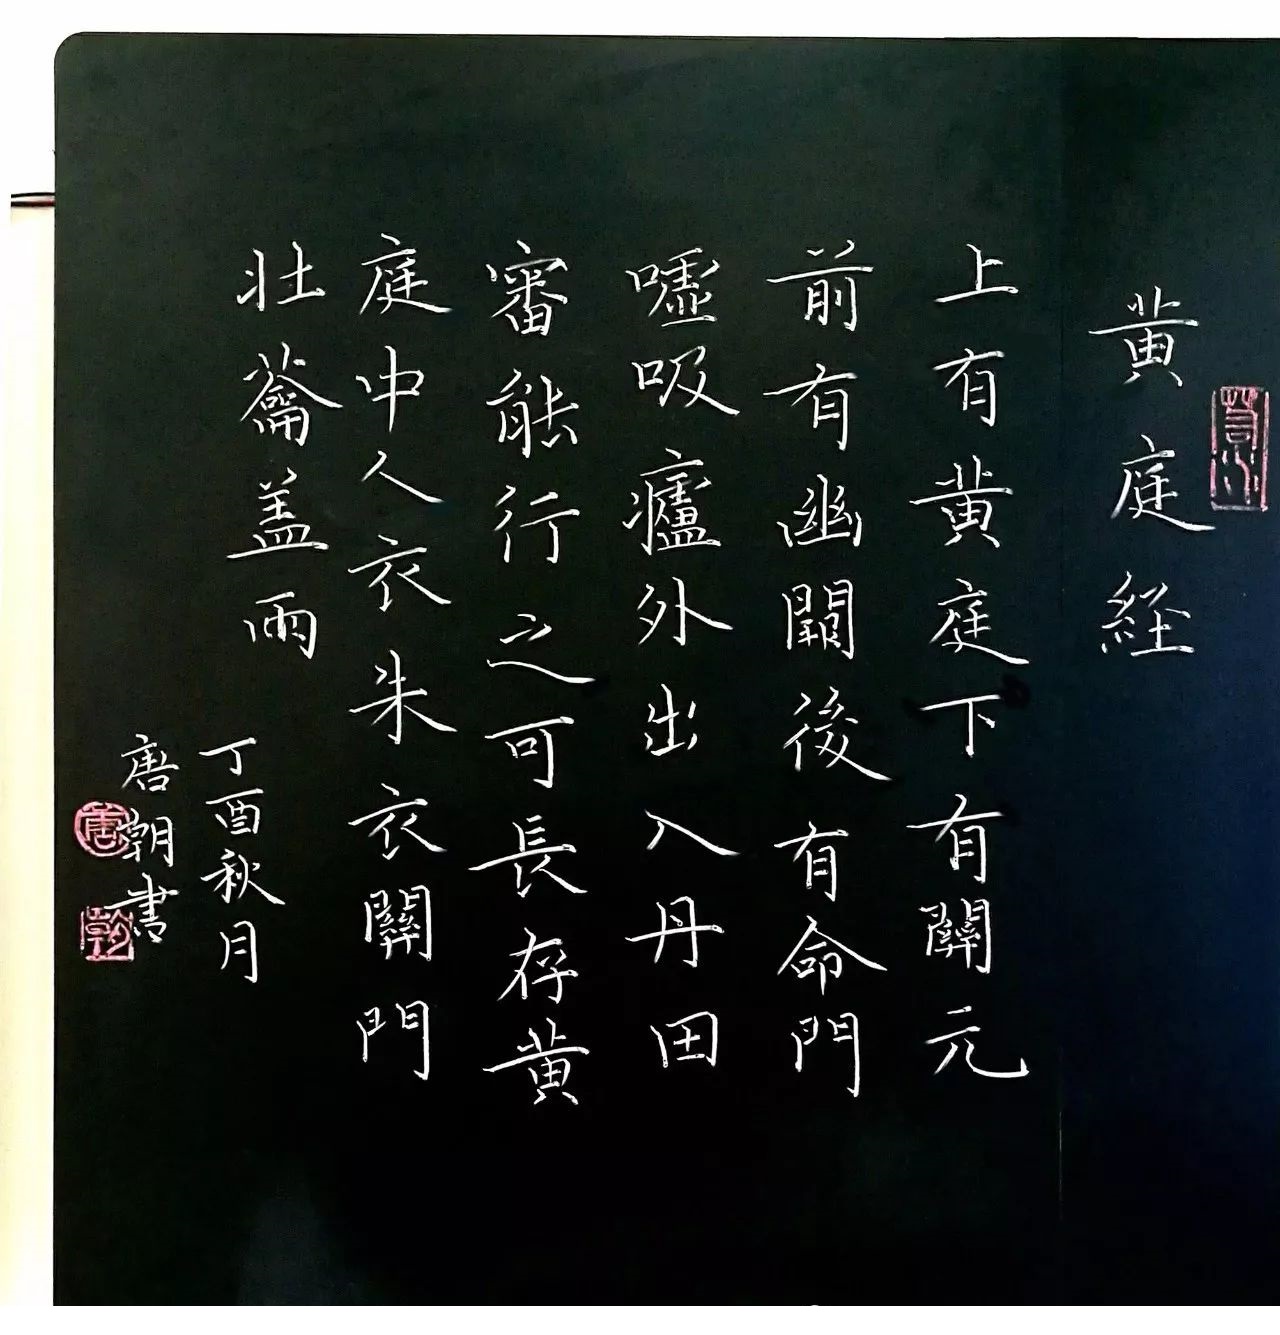 黄庭経
上有黄庭下有關元
前有幽闕後有命門
噓吸廬外出入丹田
審能行之可長存黄
庭中人衣朱衣關門
壯蘥盖兩
丁酉秋月
唐朝書